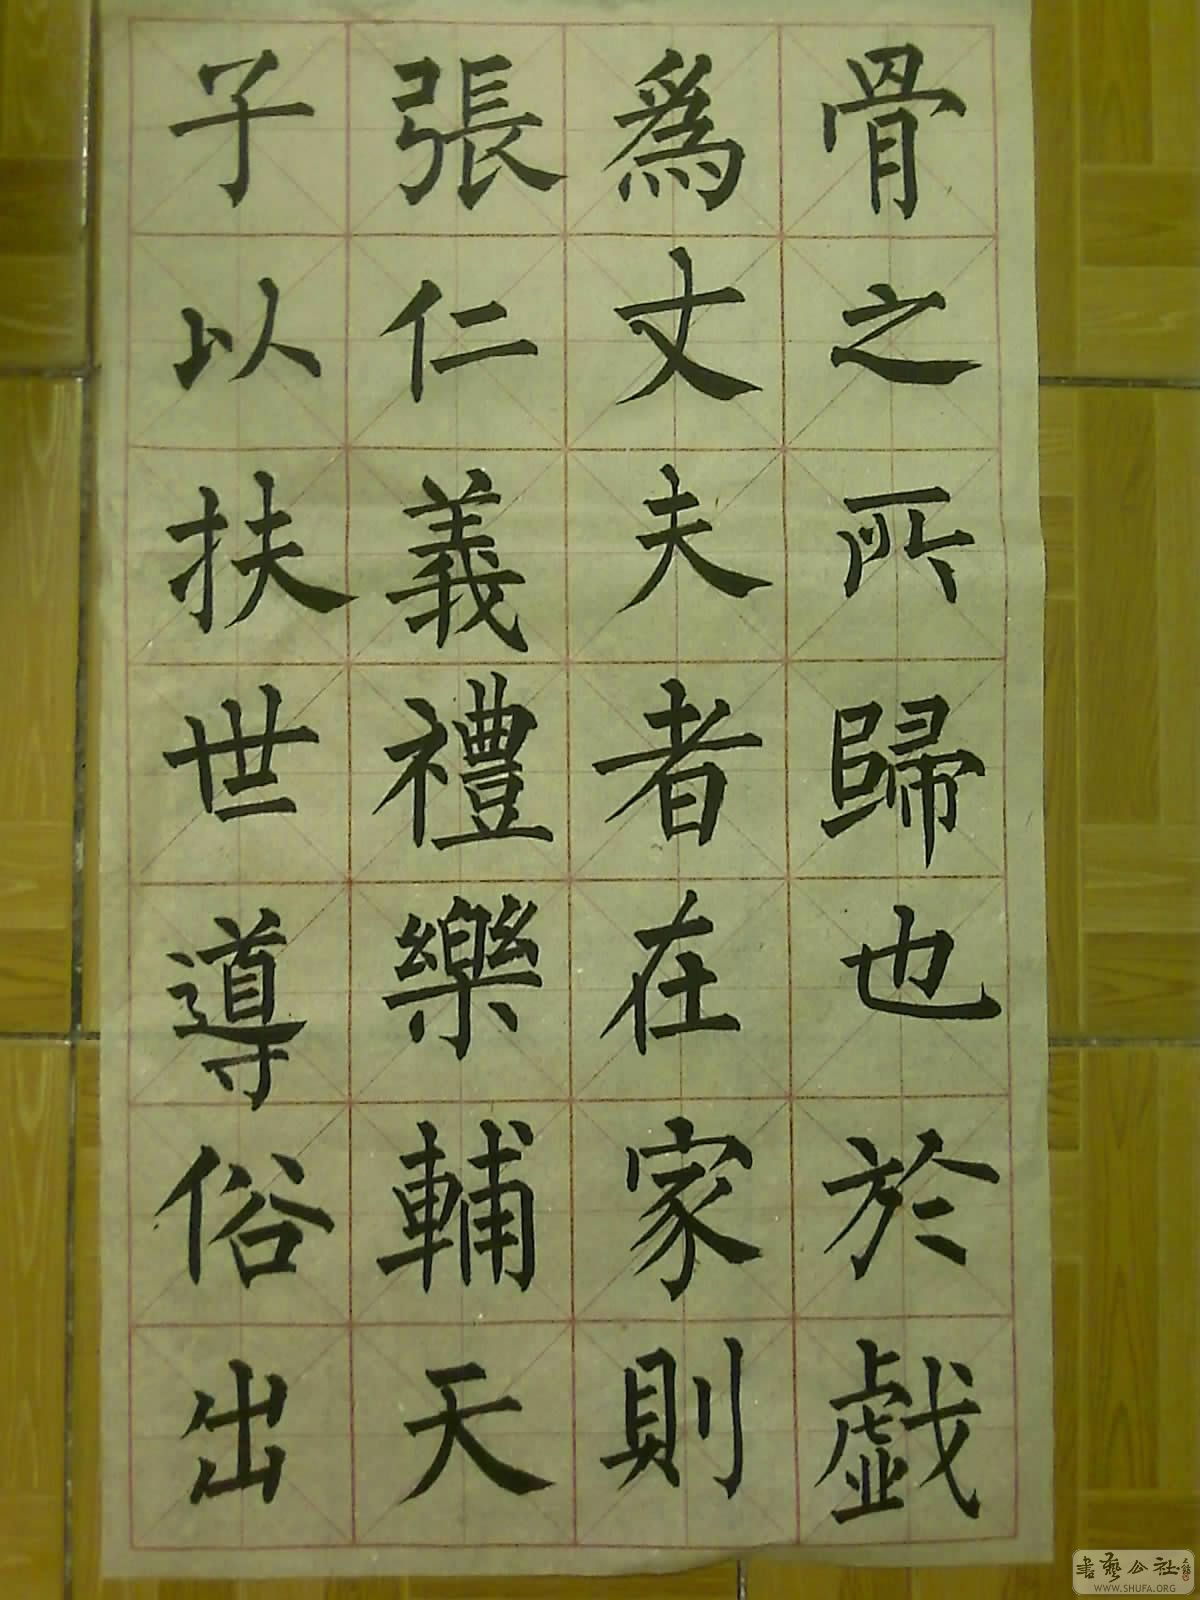 骨之所歸也於戱
爲丈夫者在家則
張仁義禮樂輔天
子以扶世導俗出
書藝公社
WWW.SHUFA.ORG